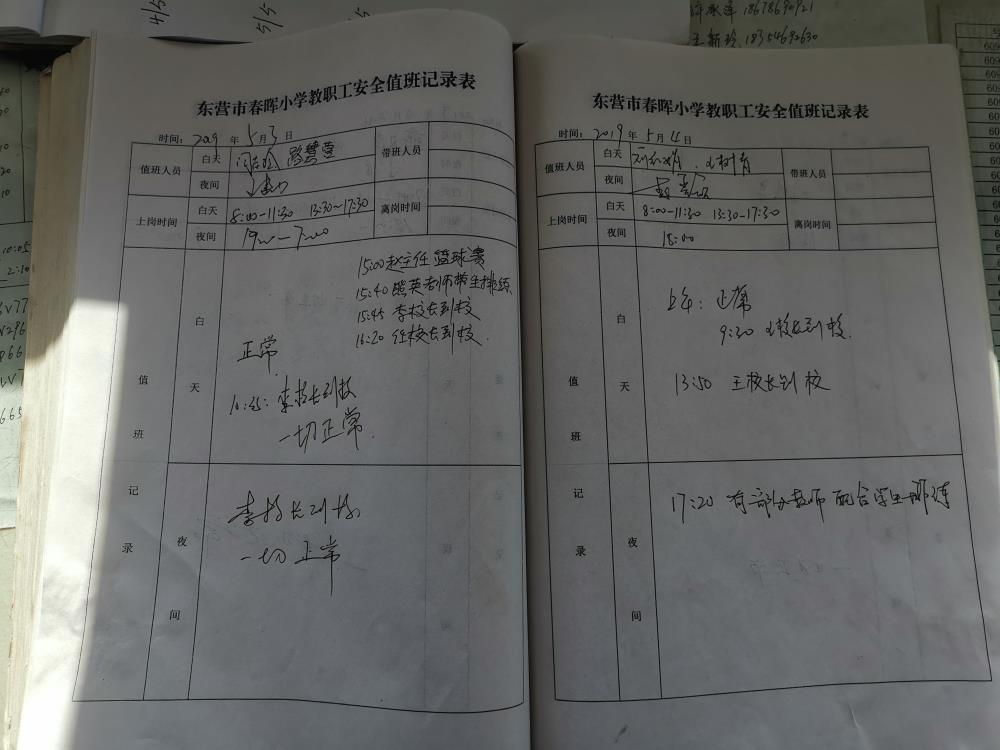 4/5
5/5
18678690921
18354692630
东营市春晖小学教职工安全值班记录表
时间: 2019 年 5 月 3 日
值班人员 白天 路慧莹 带班人员
夜间
上岗时间 白天 8:00-11:30 13:30-17:30 离岗时间
夜间 19:00-7:00
值班记录
白天
15:00 赵主任 篮球赛
15:40 熊英老师带生排练
15:45 李校长到校
16:20 任校长到校
正常
李校长到校
一切正常.
夜间
李校长到校
一切正常
东营市春晖小学教职工安全值班记录表
时间: 2019 年 5 月 4 日
值班人员 白天 带班人员
夜间
上岗时间 白天 8:00-11:30 13:30-17:30 离岗时间
夜间 18:00
值班记录
白天
上午: 正常
9:30 校长到校.
13:50 王校长到校
夜间
17:20 有部分教师配合学生排练